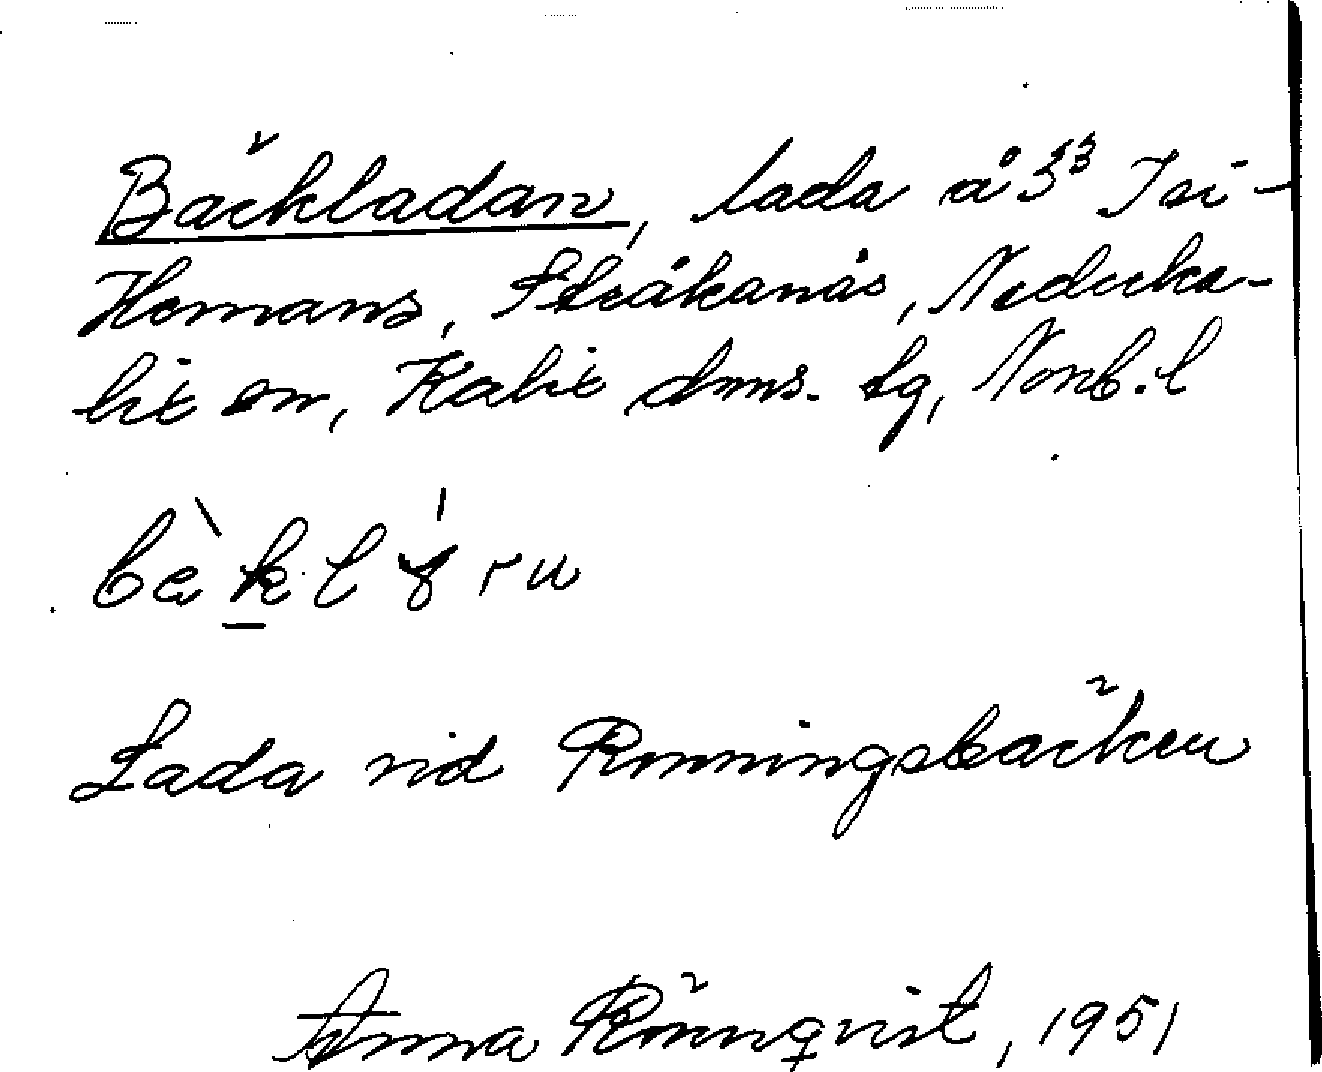 Bäckladan, lada å 3³ Isi-
Hemans, Stråkanäs, Nederka-
lix sn, Kalix dms. lg, Nonb. l
Lada vid Rönningsbäcken
Anna Rönnqvist, 1951